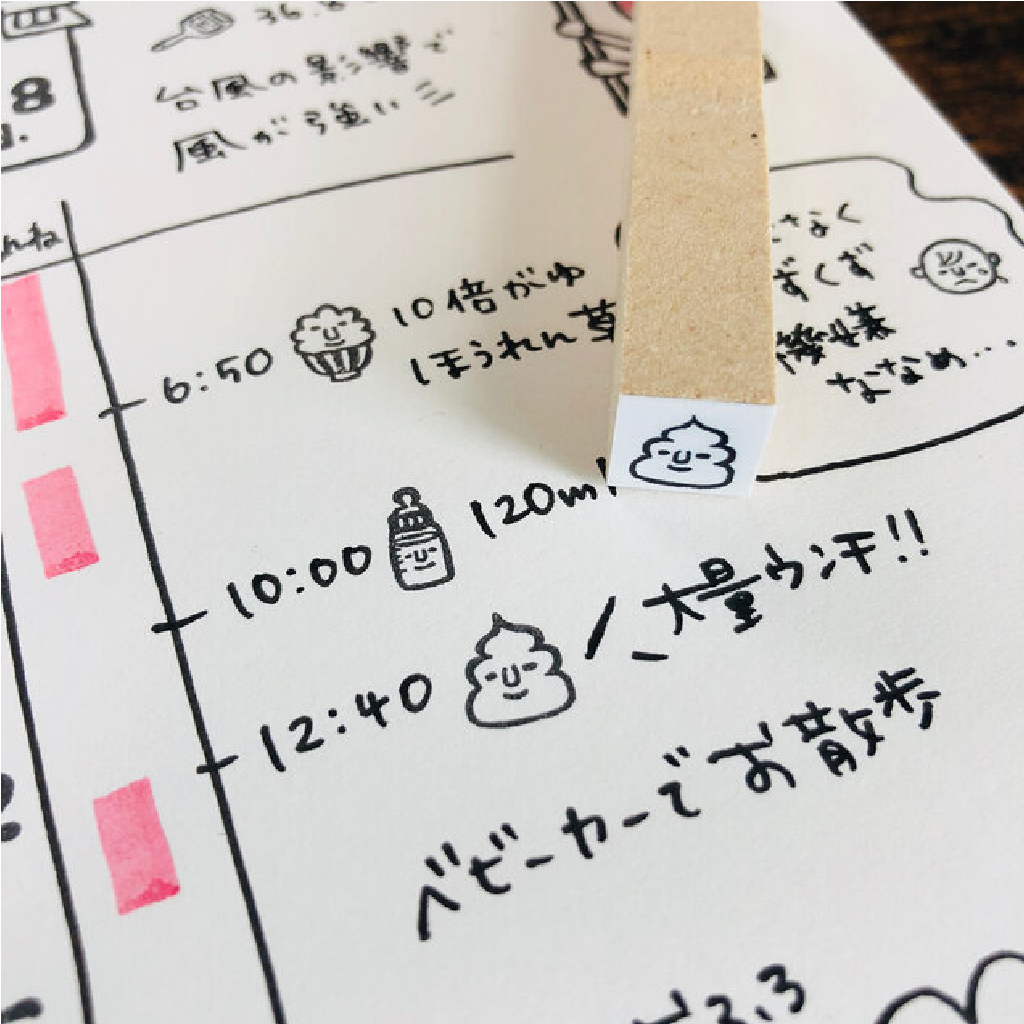 8
36.8
台風の影響で
風が強い
んね
6:50 10倍がゆ
ほうれん草
なく
ぐずぐず
機嫌
ななめ…
10:00 120ml
12:40 大量ウンチ!!
ベビーカーでお散歩